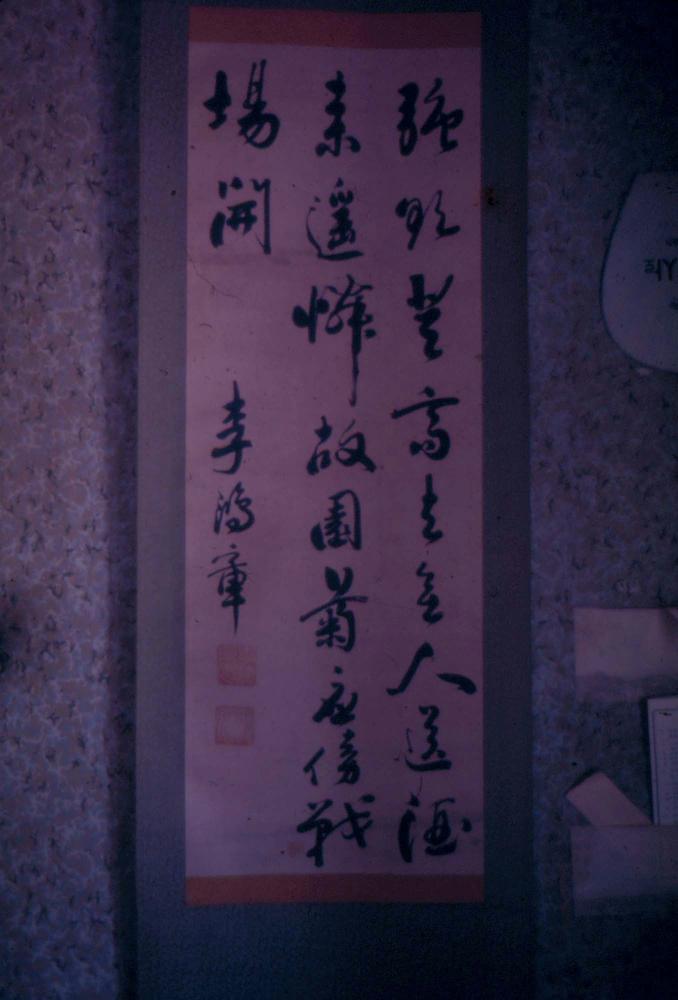 強欲登高去無人送酒
来遥憐故園菊応傍戦
場開
李鴻章